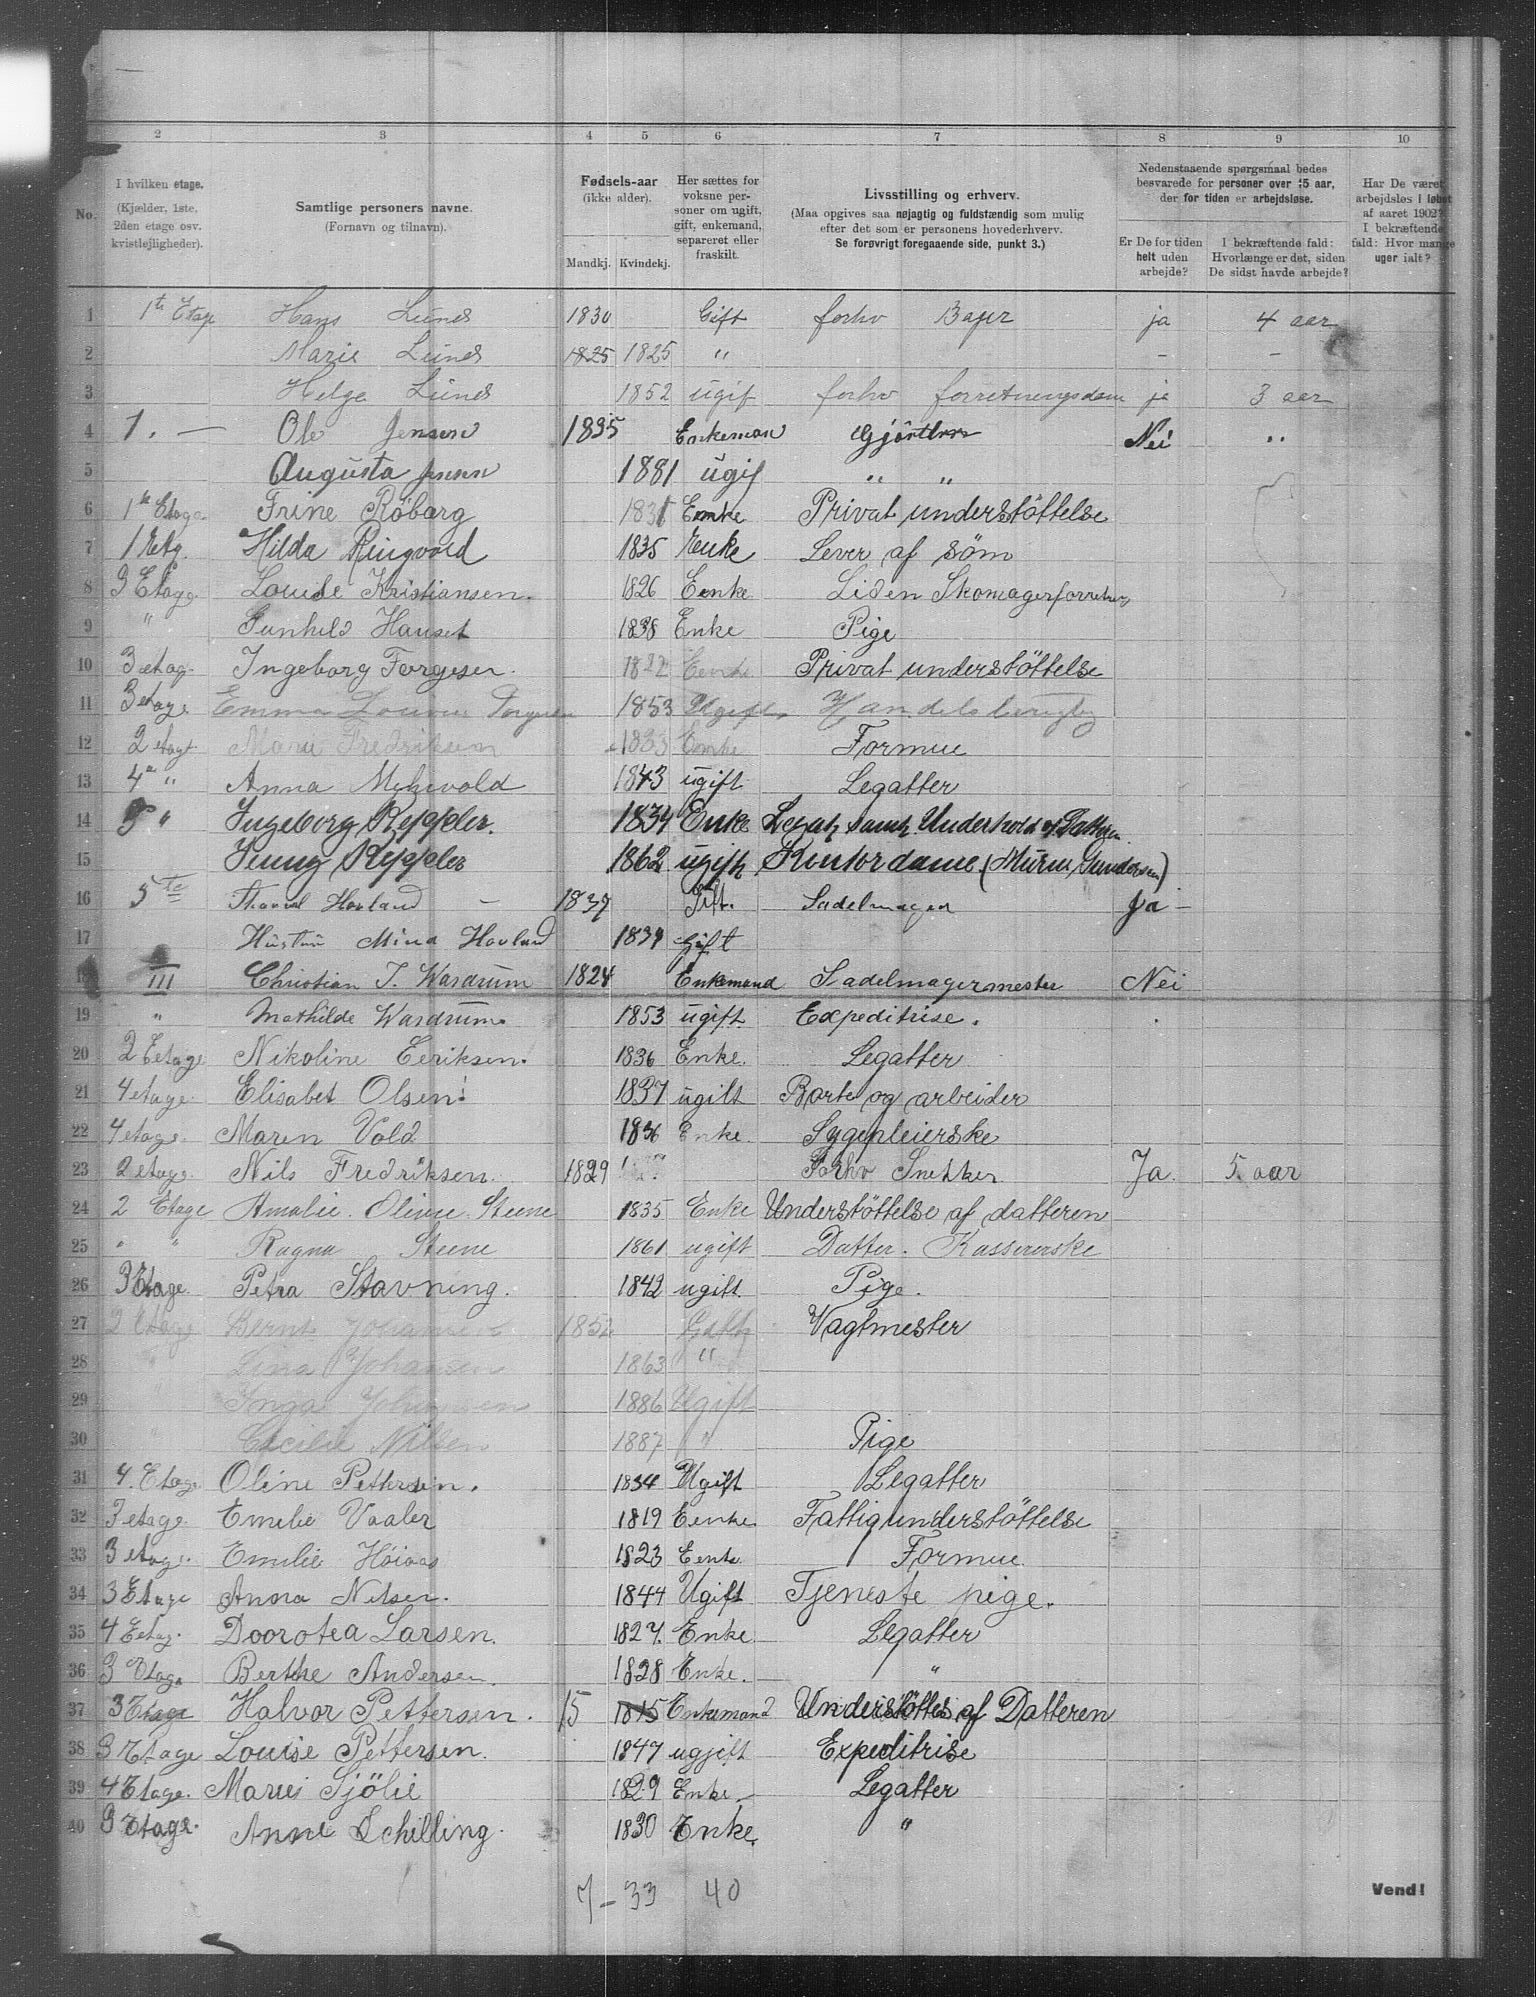 2 3 4 5 6 7 8 9 10
No.
I hvilken etage. (Kjælder, 1ste, 2den etage osv. kvistlejligheder).
Samtlige personers navne. (Fornavn og tilnavn).
Fødsels-aar (ikke alder). Mandkj. Kvindekj.
Her sættes for voksne personer om ugift, gift, enkemand, separeret eller fraskilt.
Livsstilling og erhverv. (Maa opgives saa nøjagtig og fuldstændig som mulig efter det som er personens hovederhverv. Se forøvrigt foregaaende side, punkt 3.)
Nedenstaaende spørgsmaal bedes besvarede for personer over 15 aar, der for tiden er arbejdsløse.
Er De for tiden helt uden arbejde?
I bekræftende fald: Hvorlænge er det, siden De sidst havde arbejde?
Har De været arbejdsløs i løbet af aaret 1902? I bekræftende fald: Hvor mange uger ialt?
1 1ste Etage Hans Lund 1830 Gift forhv Bager ja 4 aar
2 Marie Lund 1825 1825 " - -
3 Helga Lund 1852 ugif forhv forretningsdame ja 3 aar
4 1. — Ole Jensen 1835 Enkeman Gjörtler Nei "
5 Augusta Jensen 1881 ugif " "
6 1ste Etage Trine Röbarg 1831 Eenke Privat understöttelse
7 1 Etg. Hilda Ringvold 1835 Enke Lever af söm
8 3 Etage Louise Kristiansen. 1826 Eenke Liden Skomagerforretn
9 " Gunhild Hauset 1838 Enke Pige
10 3 etag. Ingeborg Torgesen. 1822 Eenke Privat understöttelse
11 3 etage Emma Lovise Torgesen 1853 Ugift
12 2 etage Marie Fredriksen 1833 Enke Formue
13 4 " Anna Myhrvold 1843 ugift Legatter
14 3 " Ingeborg Keppler. 1834 Enke Legat samt Underhold af Datteren
15 Jenny Keppler 1862 ugift Kontordame (Murm. Gundersen)
16 5te Hovland - 1837 Gift. Sadelmager Ja -
17 Hustru Mina Hovland 1839 Gift
18 III Christian J. Wardrum 1824 Enkemand Sadelmagermester Nei
19 " Mathilde Wardrum 1853 ugift Expeditrise.
20 2 Eetage Nikoline Eeriksen. 1836 Enke. Legatter
21 4 etage Elisabet Olsen! 1837 ugift Borte og arbeider
22 4 etage. Maren Vold 1836 Enke. Sygepleierske
23 2 etage. Nils Fredriksen. 1829 Forhv Snekker Ja. 5. aar
24 2 Etage Amalie. Olivie. Steene 1835 Enke Understöttelse af datteren
25 " " Ragna Steene 1861 ugift Datter. Kassererske
26 3 Etage. Petra Stavning. 1842 ugift. Pige.
27 2 Etage Bernt Johansen 1852 Gift Vagtmester
28 " Lina Johansen 1863 "
29 " Inga Johansen 1886 Ugift
30 " Cecilie Nilsen 1887 " Pige
31 4. Etage Oline Pettersen. 1834 Ugift Legatter
32 3 etage. Emilie Vaaler 1819 Eenke Fattigunderstöttelse
33 3 etage. Emilie Höiaas 1823 Eenke Formue
34 3 Etage Anna Nilsen. 1844 Ugift Tjeneste pige.
35 4 Eetag. Doorotea Larsen. 1827. Enke. Legatter
36 3 Etage Berthe Andersen. 1828 Enke. "
37 3 Etage Halvor Pettersen. 15 1815 Enkemand Understöttes af Datteren
38 3 Etage Louise Pettersen. 1847 ugjift Expeditrise
39 4 Etage. Maries Sjölie 1829 Enke. Legatter
40 3 Etage. Anne Schilling. 1830 Enke. "
7 - 33 40
Vend!